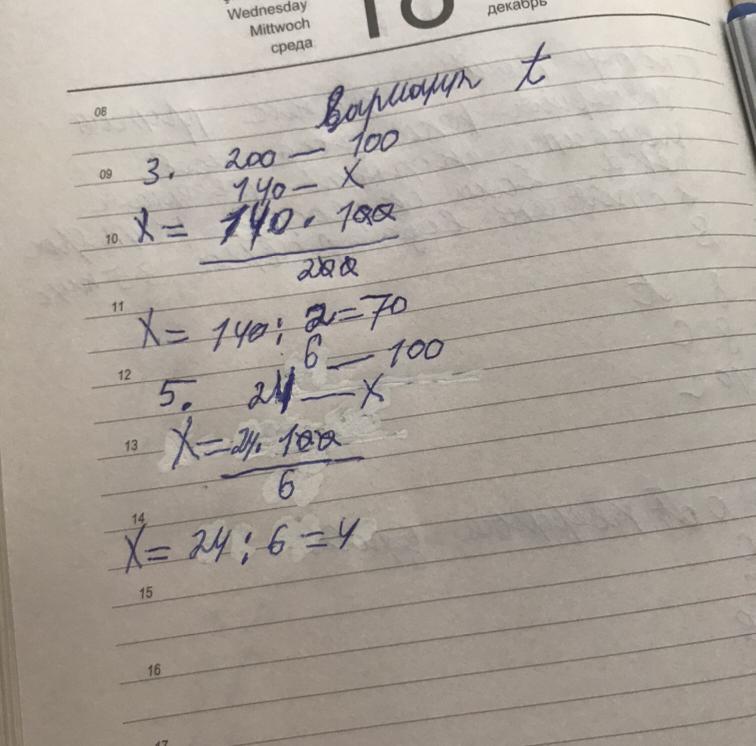 Wednesday
Mittwoch
среда
18
декабрь
08
Вариант 1
3. 200 — 100
09
140 — X
10 X = 140 · 100
200
11
X = 140 : 2 = 70
6 — 100
12
5. 24 — X
13 X = 24 · 100
6
14
X = 24 : 6 = 4
15
16
17